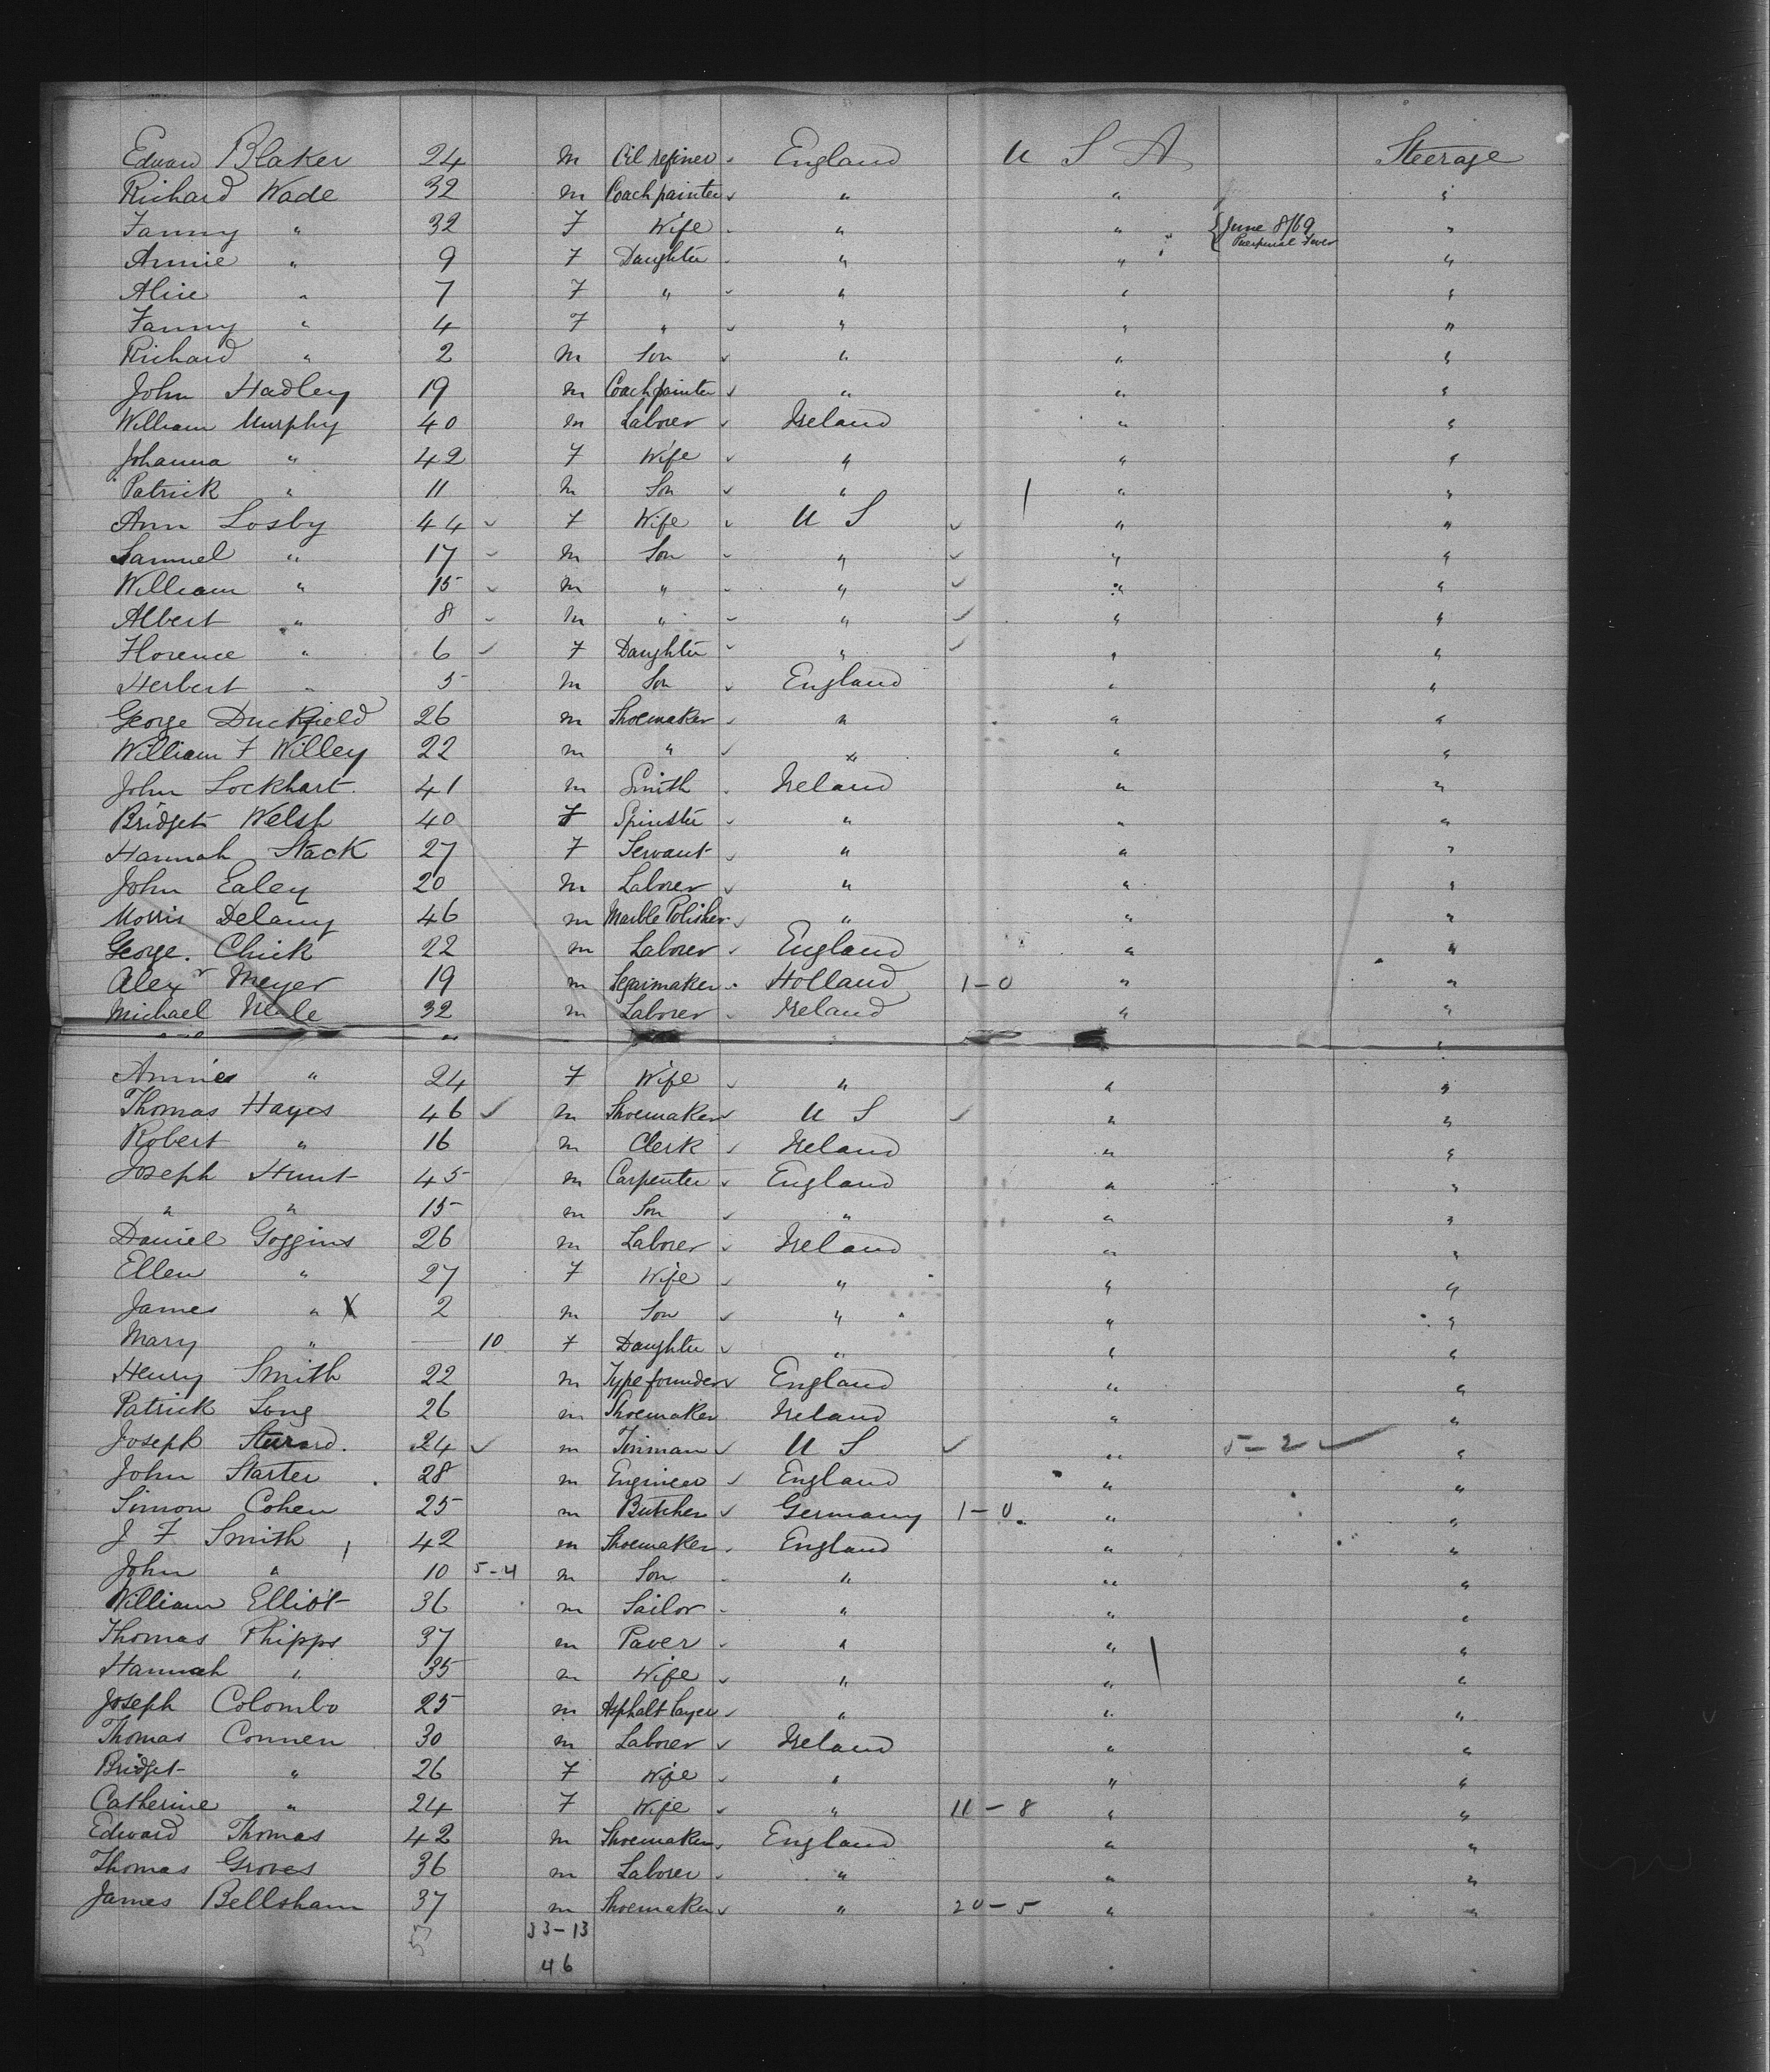 Edward Blaker 24 m Oil refiner England U S A Steerage
Richard Wade 32 m Coachpainter " " "
Fanny " 32 F Wife " " { June 8/69 Puerperal Fever "
Annie " 9 F Daughter " " "
Alice " 7 F " " " "
Fanny " 4 F " " " "
Richard " 2 m Son " " "
John Hadley 19 m Coachpainter " " "
William Murphy 40 m Laborer Ireland " "
Johanna " 42 F Wife " " "
Patrick " 11 m Son " " "
Ann Losby 44 ✓ F Wife U S ✓ " "
Samuel " 17 ✓ m Son " ✓ " "
William " 15 ✓ m " " ✓ " "
Albert " 8 ✓ m " " ✓ " "
Florence " 6 ✓ F Daughter " ✓ " "
Herbert " 5 m Son England " "
George Duckfield 26 m Shoemaker " " "
William F Willey 22 m " " " "
John Lockhart 41 m Smith Ireland " "
Bridget Welsh 40 F Spinster " " "
Hannah Stack 27 F Servant " " "
John Ealey 20 m Laborer " " "
Morris Delany 46 m Marble Polisher " " "
George Chick 22 m Laborer England " "
Alexr Meyer 19 m Segarmaker Holland 1-0 " "
Michael 32 m Laborer Ireland " "
Annie " 24 F Wife " " "
Thomas Hayes 46 ✓ m Shoemaker U S ✓ " "
Robert " 16 m Clerk Ireland " "
Joseph Hunt 45 m Carpenter England " "
" " 15 m Son " " "
Daniel Goggins 26 m Laborer Ireland " "
Ellen " 27 F Wife " " "
James " X 2 m Son " " "
Mary " — 10 F Daughter " " "
Henry Smith 22 m Typefounder England " "
Patrick Long 26 m Shoemaker Ireland " "
Joseph 24 ✓ m Tinman U S ✓ " 5-2 ✓ "
John Starter 28 m Engineer England " "
Simon Cohen 25 m Butcher Germany 1-0 " "
J F Smith 42 m Shoemaker England " "
John " 10 5-4 m Son " " "
William Elliot 36 m Sailor " " "
Thomas Phipps 37 m Paver " " "
Hannah " 35 m Wife " " "
Joseph Colombo 25 m Asphalt layer " " "
Thomas Connen 30 m Laborer Ireland " "
Bridget " 26 F Wife " " "
Catherine " 24 F Wife " 11-8 " "
Edward Thomas 42 m Shoemaker England " "
Thomas Groves 36 m Laborer " " "
James Bellsham 37 m Shoemaker " 20-5 " "
53 33-13
46